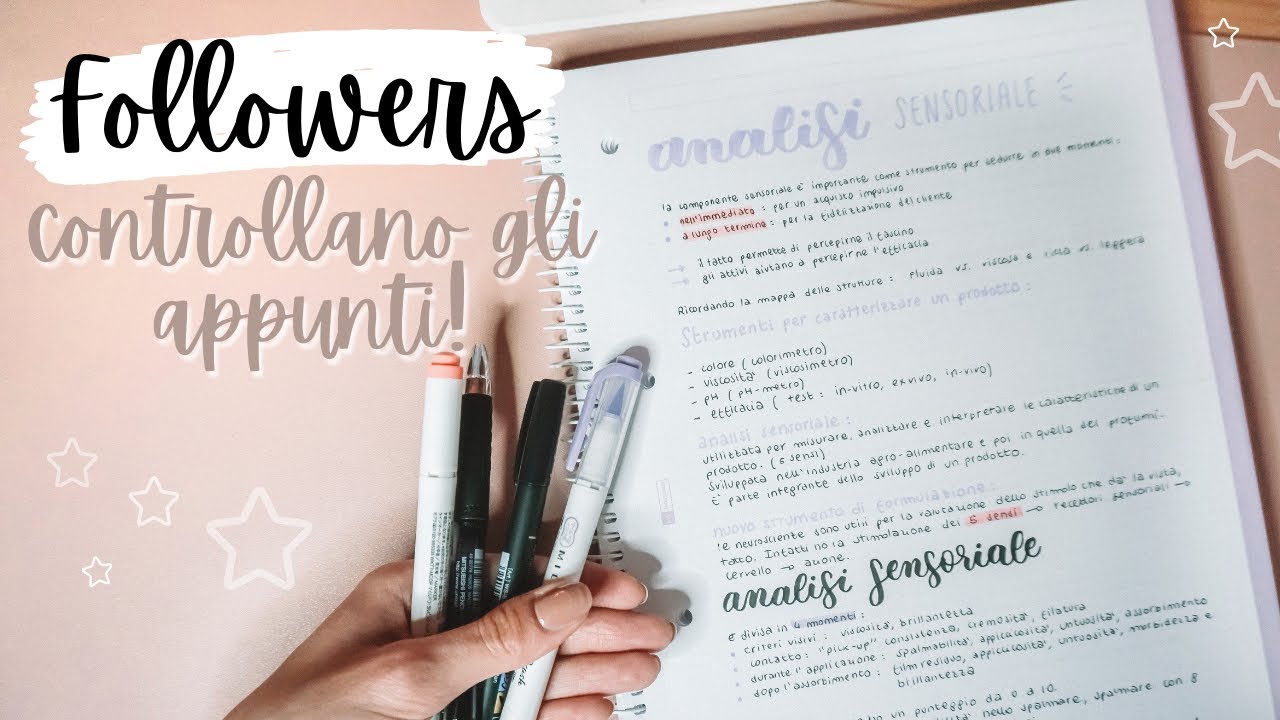 Followers
controllano gli
appunti!
analisi SENSORIALE
la componente sensoriale e' importante come strumento per sedurre in due momenti:
nell'immediato: per un acquisto impulsivo
a lungo termine: per la fidelizzazione del cliente
→ Il tatto permette di percepirne il fascino
→ gli attivi aiutano a percepirne l'efficacia
Ricordando la mappa delle strutture: fluida vs. viscosa e ricca vs. leggera
Strumenti per caratterizzare un prodotto:
- colore (colorimetro)
- viscosita' (viscosimetro)
- pH (pH-metro)
- efficacia (test: in-vitro, ex-vivo, in-vivo)
analisi sensoriale:
utilizzata per misurare, analizzare e interpretare le caratteristiche di un
prodotto. (5 sensi)
Sviluppata nell'industria agro-alimentare e poi in quella dei profumi.
E' parte integrante dello sviluppo di un prodotto.
nuovo strumento di formulazione:
le neuroscienze sono utili per la valutazione dello stimolo che da' la vista,
tatto. Infatti no la stimolazione dei 5 sensi → recettori sensoriali →
cervello → azione.
analisi sensoriale
e' divisa in 4 momenti:
criteri visivi: viscosita', brillantezza
contatto: "pick-up" consistenza, cremosita', filatura
durante l'applicazione: spalmabilita', appiccicosita', untuosita', assorbimento
dopo l'assorbimento: film residuo, appiccicosita', untuosita', morbidezza e
brillantezza
un punteggio da 0 a 10.
nello spalmare, spalmare con 8
MITSUBISHI PENCIL
MILD